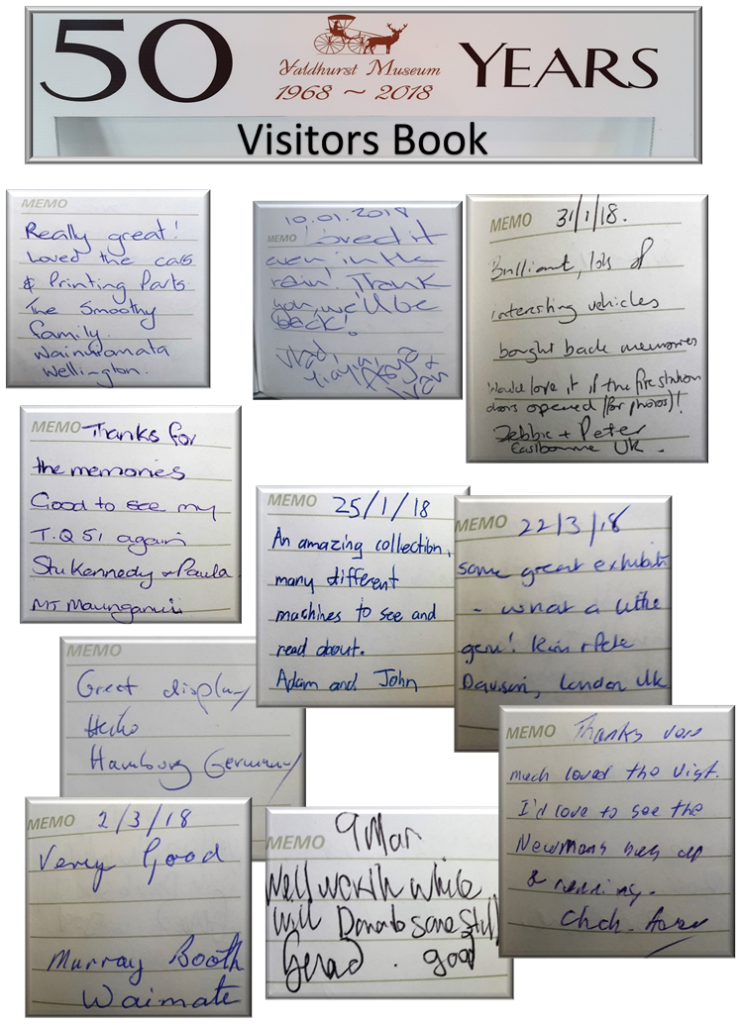 50 YEARS
Yaldhurst Museum
1968 ~ 2018
Visitors Book
MEMO
Really great!
Loved the cars
& Printing Parts
The Smoothy
family.
Wainuiomata
Wellington.
10.01.2018
MEMO Loved it
even in the
rain! Thank
you, we'll be
back!
Vlad,
MEMO 31/1/18.
Brilliant, lots of
interesting vehicles
bought back memories
Would love it if the fire station
doors opened (for photos)!
Debbie + Peter
Eastbourne UK.
MEMO Thanks for
the memories
Good to see my
T.Q 51 again
Stu Kennedy & Paula
MT Maunganui
MEMO 25/1/18
An amazing collection,
many different
machines to see and
read about.
Adam and John
MEMO 22/3/18
some great exhibit
- what a little
gem! Kim & Pete
Dawson, London UK
MEMO
Great display
Heiko
Hamburg Germany
MEMO 2/3/18
Very Good
Murray Booth
Waimate
MEMO 9 Mar
Well worth while
will Donate some Still
Gerad. good
MEMO Thanks very
much loved the visit.
I'd love to see the
Newmans bus up
& running.
Chch.